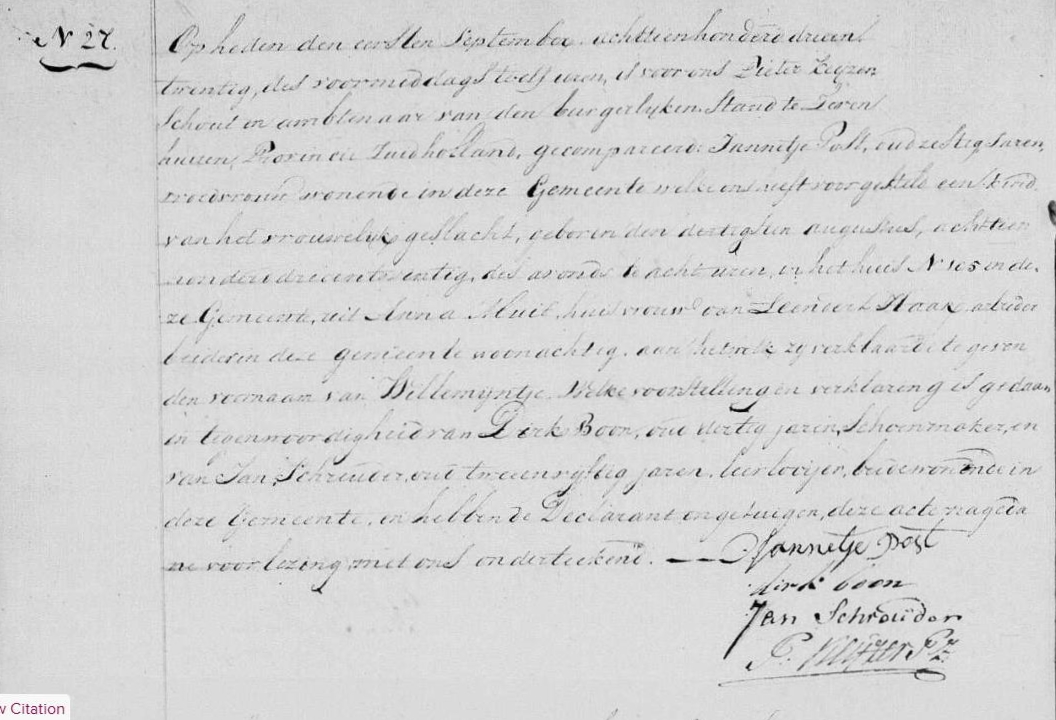 N 27.
Op heden den eersten September achttienhonderd drieen
twentig, des voormiddags te elf uren, is voor ons Pieter Keyzer
Schout en ambtenaar van den burgerlyken Stand te Zeven
huisen, Provincie Zuidholland, gecompareerd: Jannetje Post, oud zestig Jaren,
vroedvrouw wonende in deze Gemeente welke ons heeft voorgesteld een kind
van het vrouwelyk geslacht, geboren den dertigsten augustus, achttien
honderd drieentwentig, des avonds te acht uren, in het huis N 105 in de
ze Gemeente, uit Anna Kluit, huisvrouw van Leendert Haak arbeider
beide in deze gemeente woonachtig. aan hetwelk zy verklaarde te geven
den voornaam van Willemyntje. Welke voorstelling en verklaring is gedaan
in tegenwoordigheid van Dirk Boon, oud dertig jaren, Schoenmaker, en
van Jan Schreuder, oud tweeenvyftig jaren. leerlooijer, beide wonende in
deze Gemeente. en hebben de Declarant en getuigen, deze acte na geda
ne voorlezing, met ons onderteekend.
Jannetje Post
dirk boon
Jan Schreuder
P. Keijzer Pz
w Citation